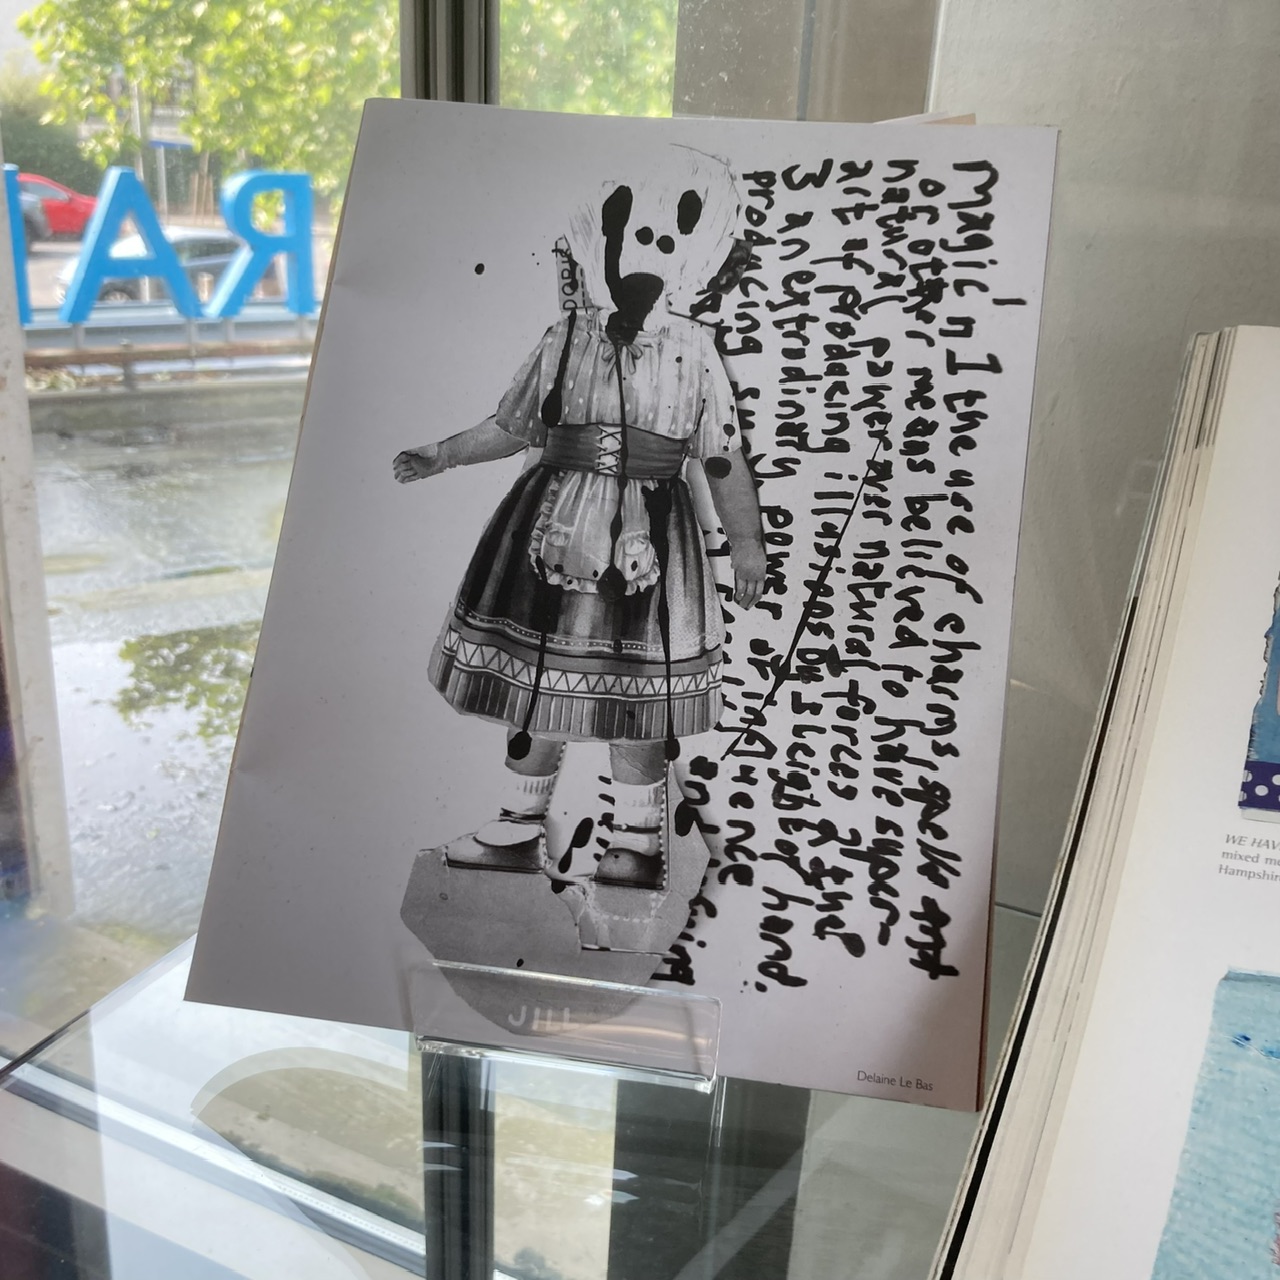 magic n 1 the use of charms, spells etc
or other means believed to have super-
natural power over natural forces 2 the
art of producing illusions by sleight of hand.
3 an extrodinary power of influence
producing
and
DORIS
JILL
Delaine Le Bas
RA
WE HAV
mixed me
Hampshire